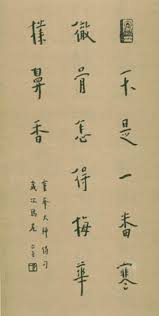 不是一番寒
徹骨怎得梅華
撲鼻香
大師詩句
歲次